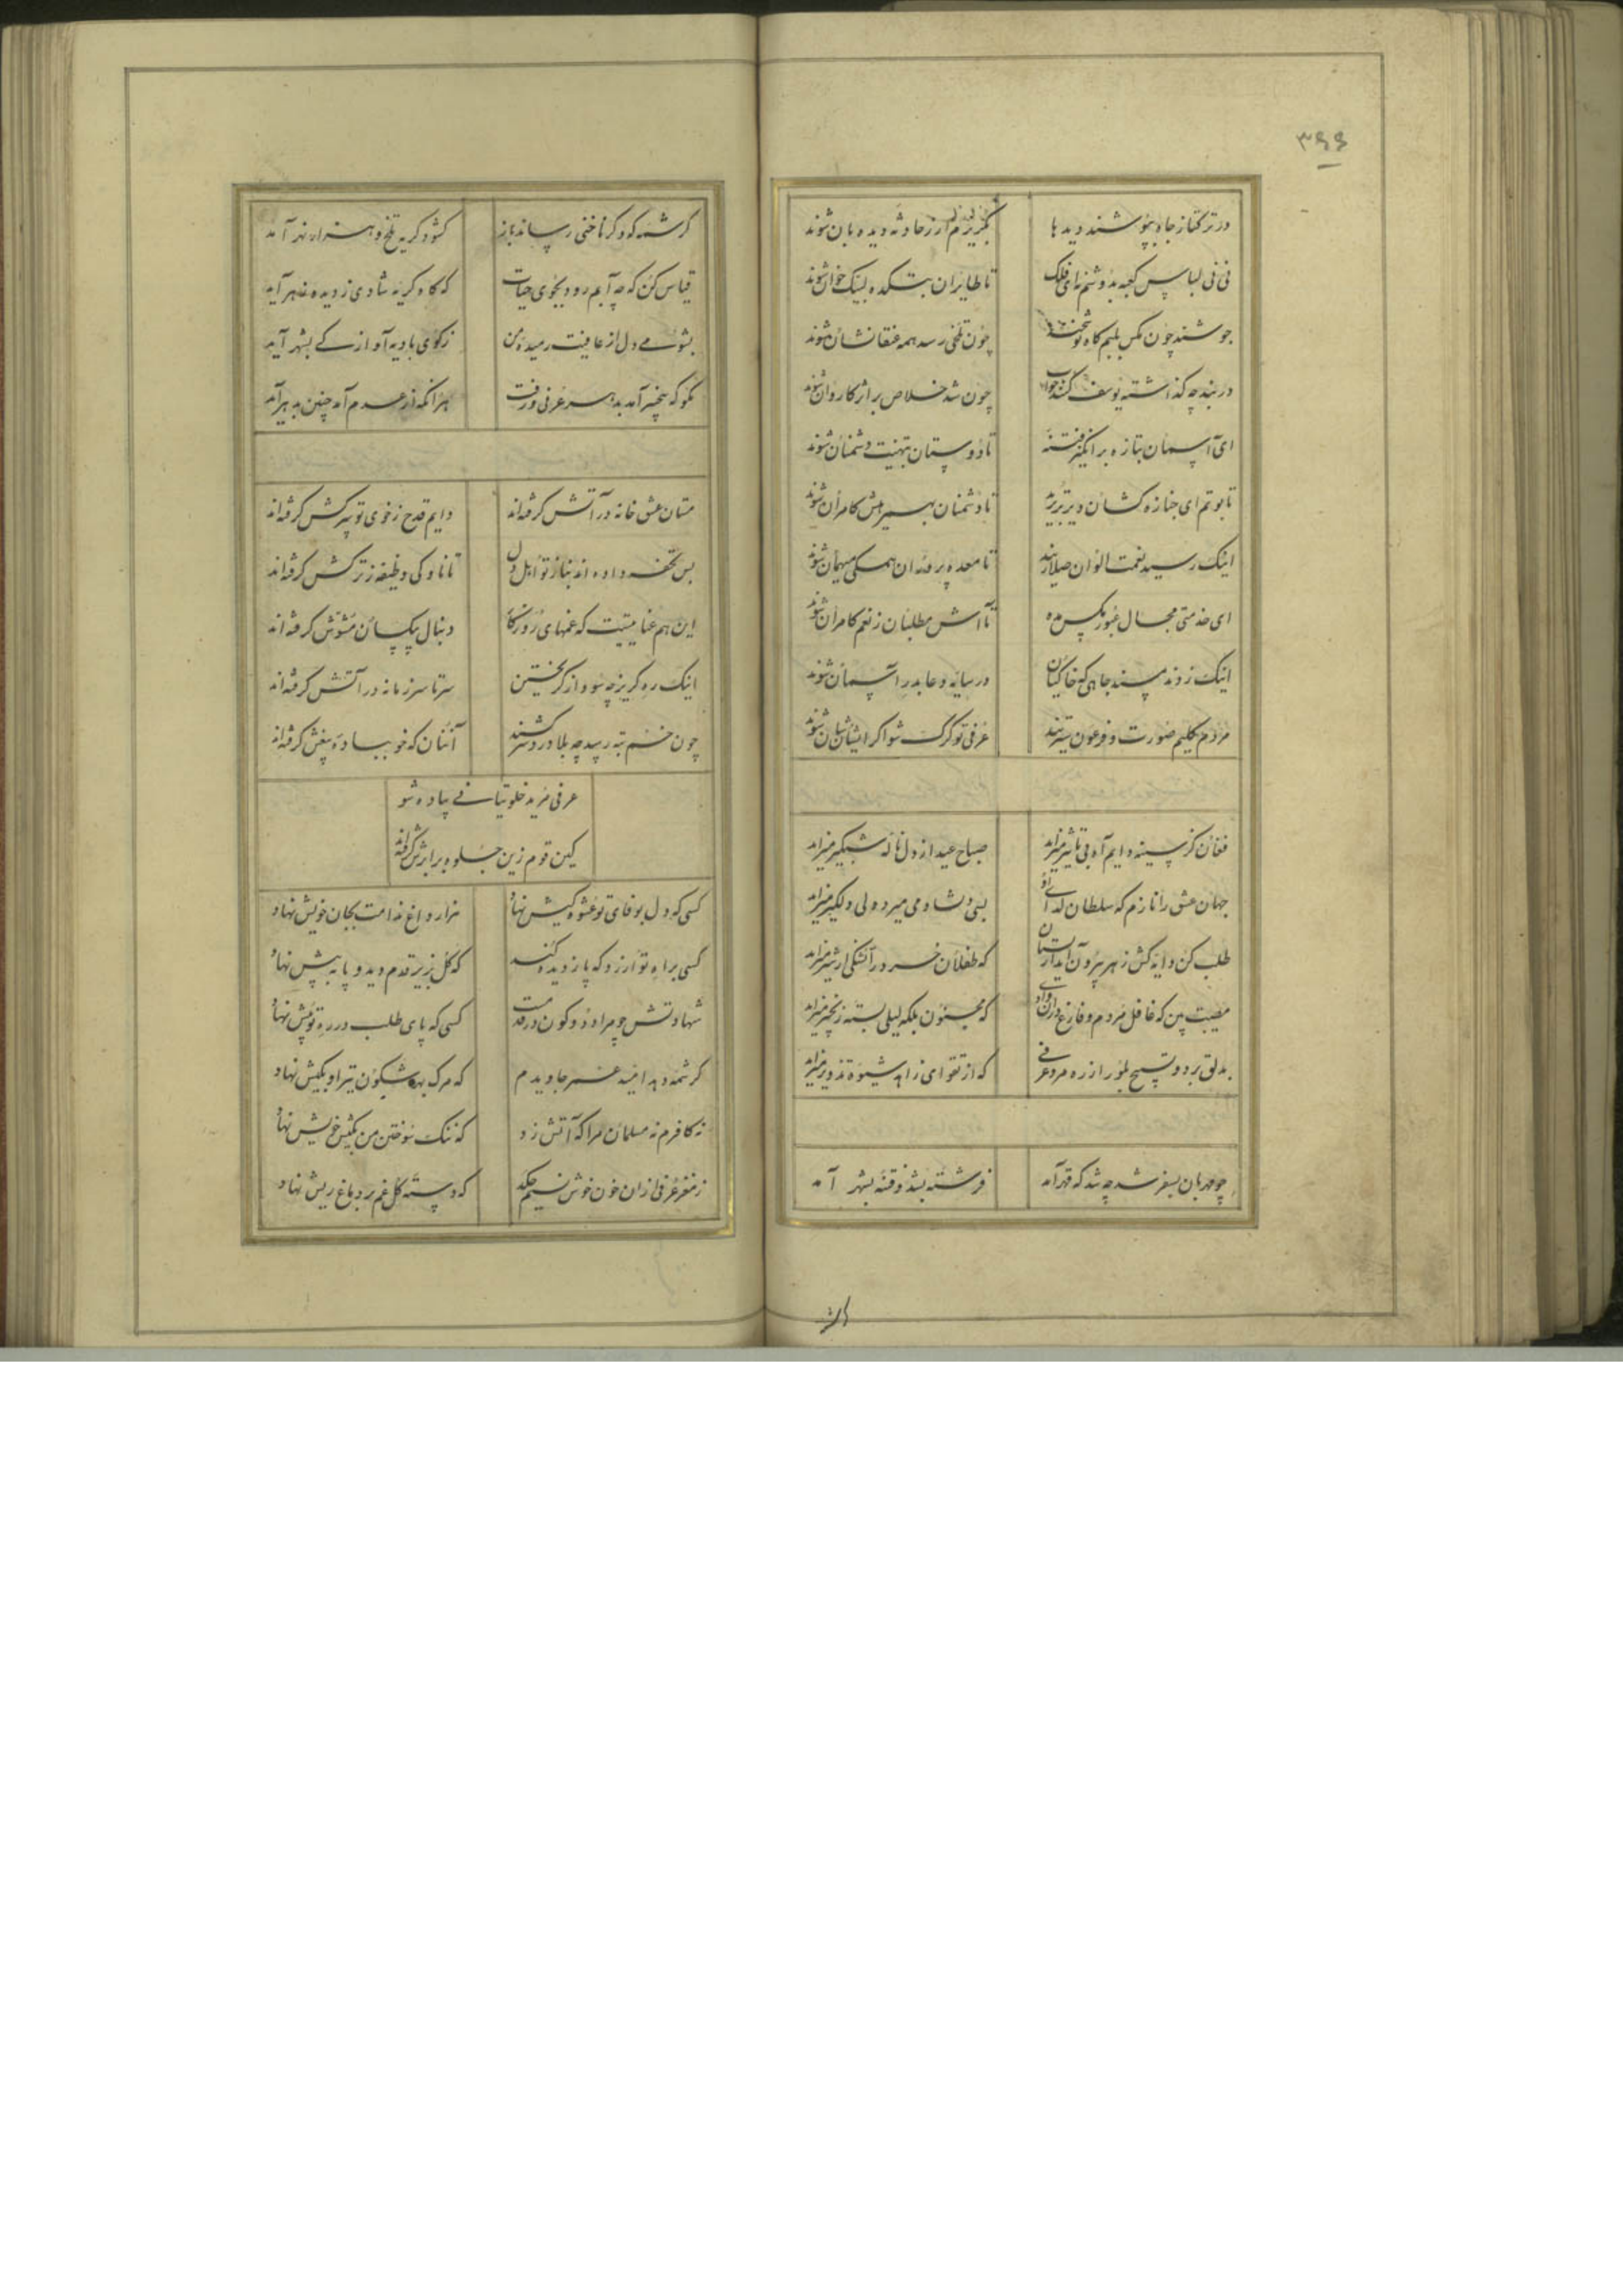 ۳۶۶
در ترکتاز جاه بپوشند دیدها بگریزم ار ز حادثه دیده‌بان شوند
نی نی لباس کعبه بدوشم نه ای فلک تا طایران بتکده لبیک خوان شوند
جوشند چون مگس بلبم گاه چون تلخی رسد همه عنقا نشان شوند
در بند چه گذاشته یوسف کنند خواب چون شد خلاص بر اثر کاروان شوند
ای آسمان بتازه برانگیز فتنه تا دوستان بتهنیت دشمنان شوند
تابوتم ای جنازه کشان دیرتر برید تا دشمنان بهمرهیش کامران شوند
اینک رسید نعمت الوان صلا زنید تا معده پروران همگی میهمان شوند
ای خدمتی مجال عبور مگس مده تا آش مطلبان ز نعم کامران شوند
اینک زدند مسند جاهی که خاکیان در سایه دعا بدر آسمان شوند
مردم کلیم صورت و فرعون سیرتند عرفی تو گرگ شو اگر ایشان شبان شوند
فغان کز سینه دایم آه بی تاثیر میزاید صباح عید از دل ناله شبگیر میزاید
جهان عشق را نازم که سلطان گدای او بسی دلشاد می میرد ولی دلگیر میزاید
طلب کن دایه کش زهر بیرون آید از پستان که طفلان خرد را تشنگی از شیر میزاید
مصیبت بین که غافل مردم و فارغ در آن وادی که مجنون بلکه لیلی بسته زنجیر میزاید
بدلق برد و تسبیح بلور از ره مرو عرفی که از تقوای زاهد شیوه تزویر میزاید
چو مهربان بسفر شد چه شد که قهر آمد فرشته بشد و فتنه بشهر آمد
کرشمه که دگر ناخنی رساند باز گشود گریه تلخ و هزار نهر آمد
قیاس کن که چه آبم رود بجوی حیات که گاه گریه شادی ز دیده زهر آید
بشوی دل از عافیت رمیده من ز کوی بادیه آواز کی بشهر آید
بگو که بیخبر آمد بدهر عرفی و رفت هر آنکه از عدم آمد چنین بدهر آمد
مستان عشق خانه در آتش گرفته‌اند دایم قدح ز خوی تو سرکش گرفته‌اند
بس تحفه داده‌اند بناز تو اهل دل تا ناوکی وظیفه ز ترکش گرفته‌اند
این هم عنایتیست که غمهای روزگار دنبال بیکسان مشوش گرفته‌اند
اینک ره گریز چه سود از گریختن سر تا سر زمانه در آتش گرفته‌اند
چون خم به ته رسد چه بلا دردسر کشند آنان که خو بباده بیغش گرفته‌اند
عرفی مرید خلوتیانی پیاده شو
کین قوم زین جلوه بر ابرش گرفته‌اند
کسی که دل بوفای تو عشوه کیش نهاد هزار داغ ندامت بجان خویش نهاد
کسی براه تو ارزد که پا ز دیده کند که گل بزیر قدم دید و پا به پیش نهاد
شهادتش چو مراد دو کون در قدمست کسی که پای طلب در ره تو پیش نهاد
کرشمه دهد اینه عمر جاویدم که مرگ بهر شگون تیر او بکیش نهاد
نه کافرم نه مسلمان مرا که آتش زد که ننگ سوختن من بکیش خویش نهاد
ز مغز عرفی ازان خون خوش نسیم چکد که دسته گل غم بر دماغ ریش نهاد